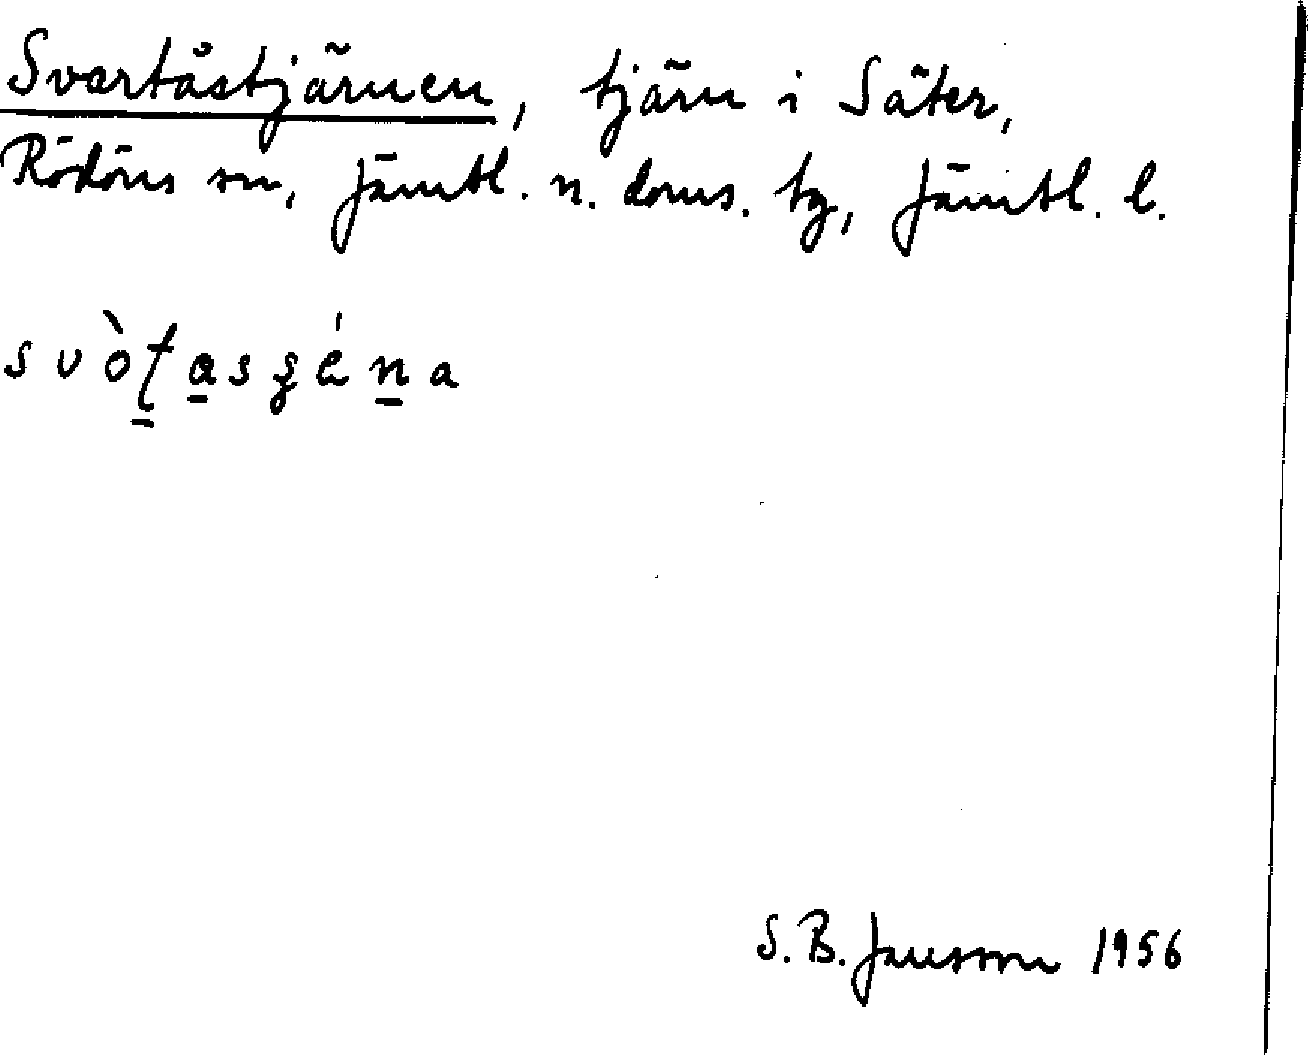 Svartåstjärnen, tjärn i Säter,
Rödöns sn, Jämtl. n. doms. tg, Jämtl. l.
svòt̠a̠sʂén̠a
S. B. Jansson 1956